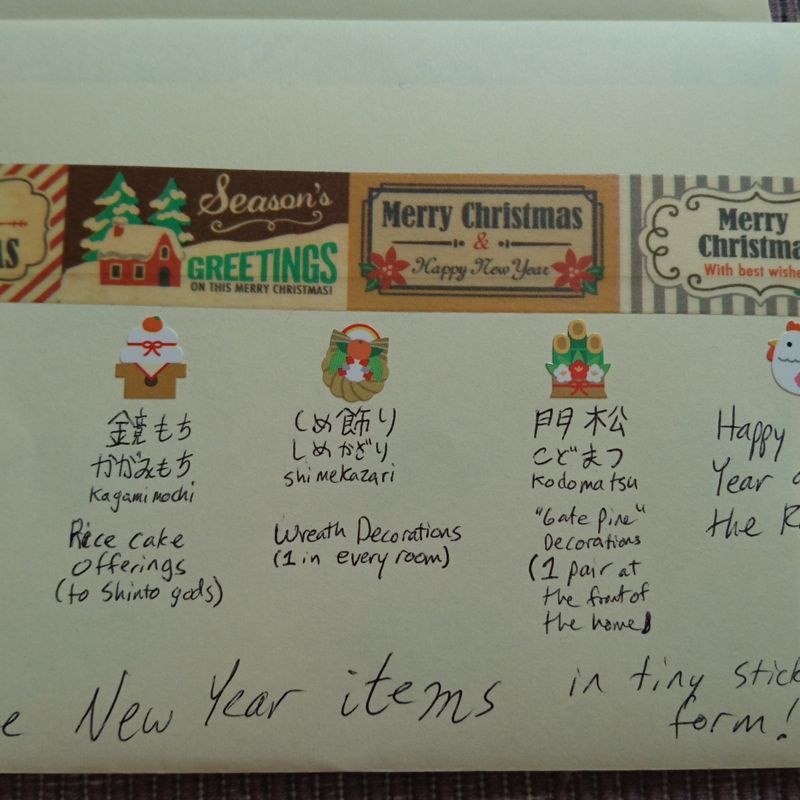 AS
Season's
GREETINGS
ON THIS MERRY CHRISTMAS!
Merry Christmas
&
Happy New Year
Merry
Christma
With best wishe
鏡もち
かがみもち
Kagami mochi
Rice cake
Offerings
(to Shinto gods)
しめ飾り
しめかざり
shimekazari
Wreath Decorations
(1 in every room)
門松
こどまつ
Kodomatsu
"Gate Pine"
Decorations
(1 pair at
the front of
the home)
Happy
Year
the R
e New Year items in tiny stick
form!